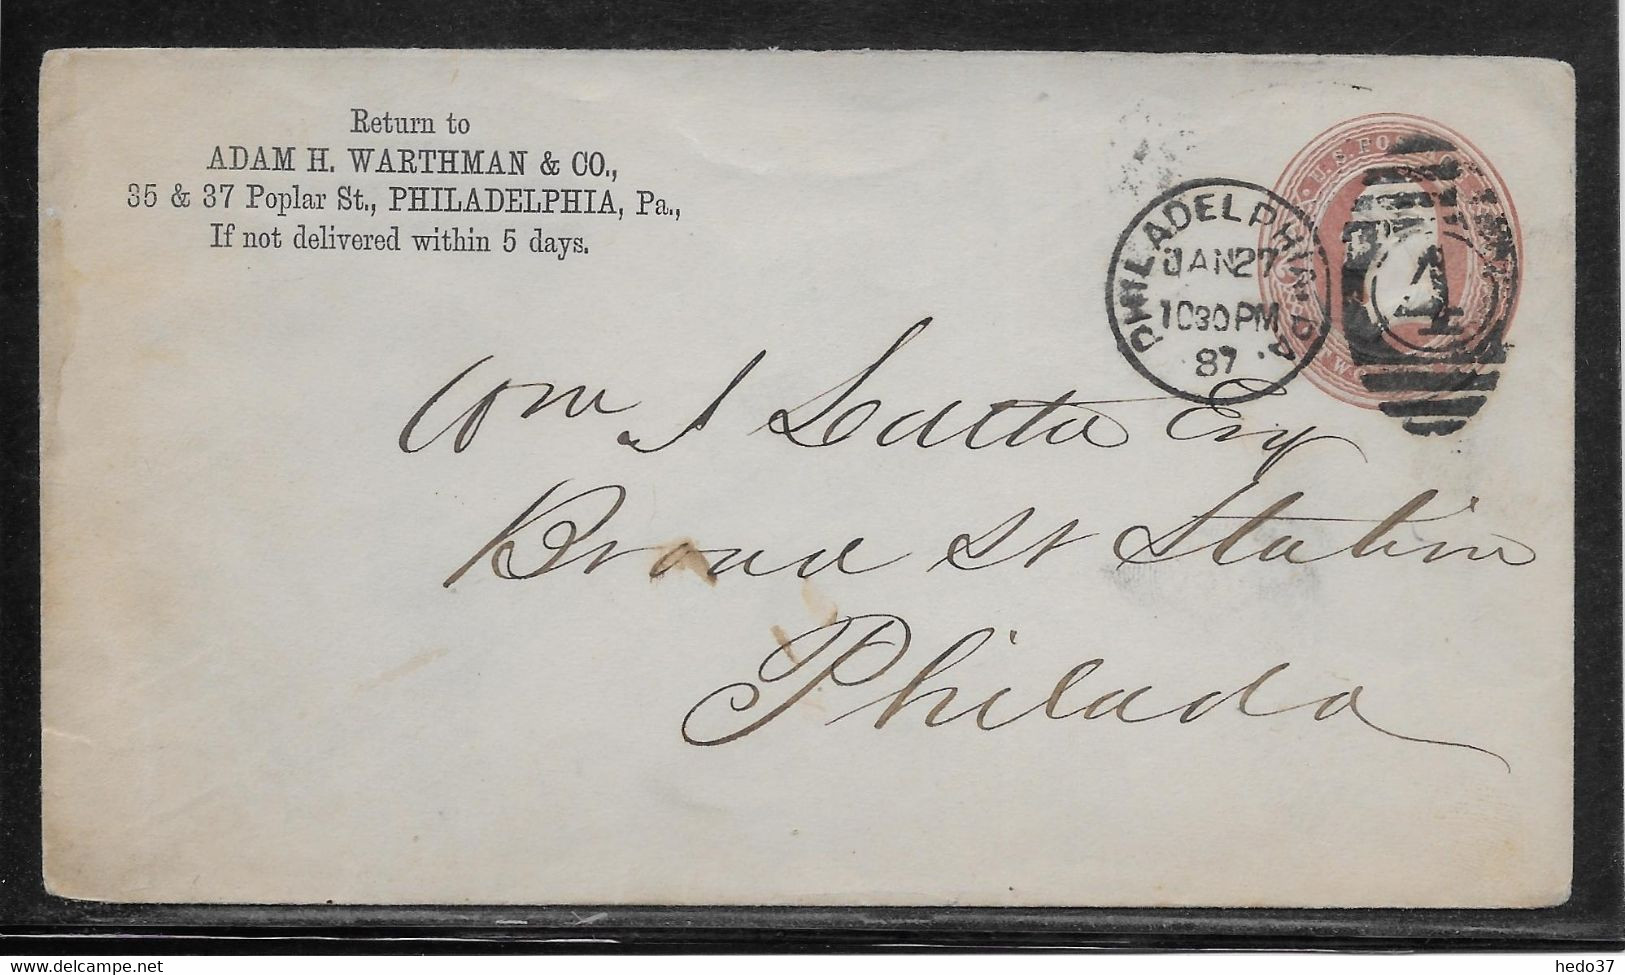 Return to
ADAM H. WARTHMAN & CO.,
35 & 37 Poplar St., PHILADELPHIA, Pa.,
If not delivered within 5 days.
U.S. POS
PHILADELPHIA PA.
JAN 27
1030 PM
87
1
TWO
Wm J Latta Esq
Broad St Station
Philada
delcampe.net
hedo37